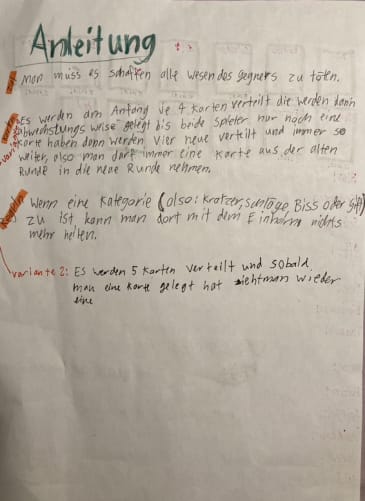 Anleitung
Ziel: Man muss es schaffen alle wesen des gegners zu töten.
Es werden am Anfang Je 4 Karten verteilt die werden dann
abwechslungs weise gelegt bis beide Spieler nur noch eine
Karte haben dann werden Vier neue verteilt und immer so
weiter, also man darf immer eine Karte aus der alten
Runde in die neue Runde nehmen.
Regeln: Wenn eine Kategorie (also: Kratzer, Schläge, Biss oder Gift)
zu ist kann man dort mit dem Einhorn nichts
mehr heilen.
Variante 2: Es werden 5 Karten verteilt und sobald
man eine Karte gelegt hat zieht man wieder
eine